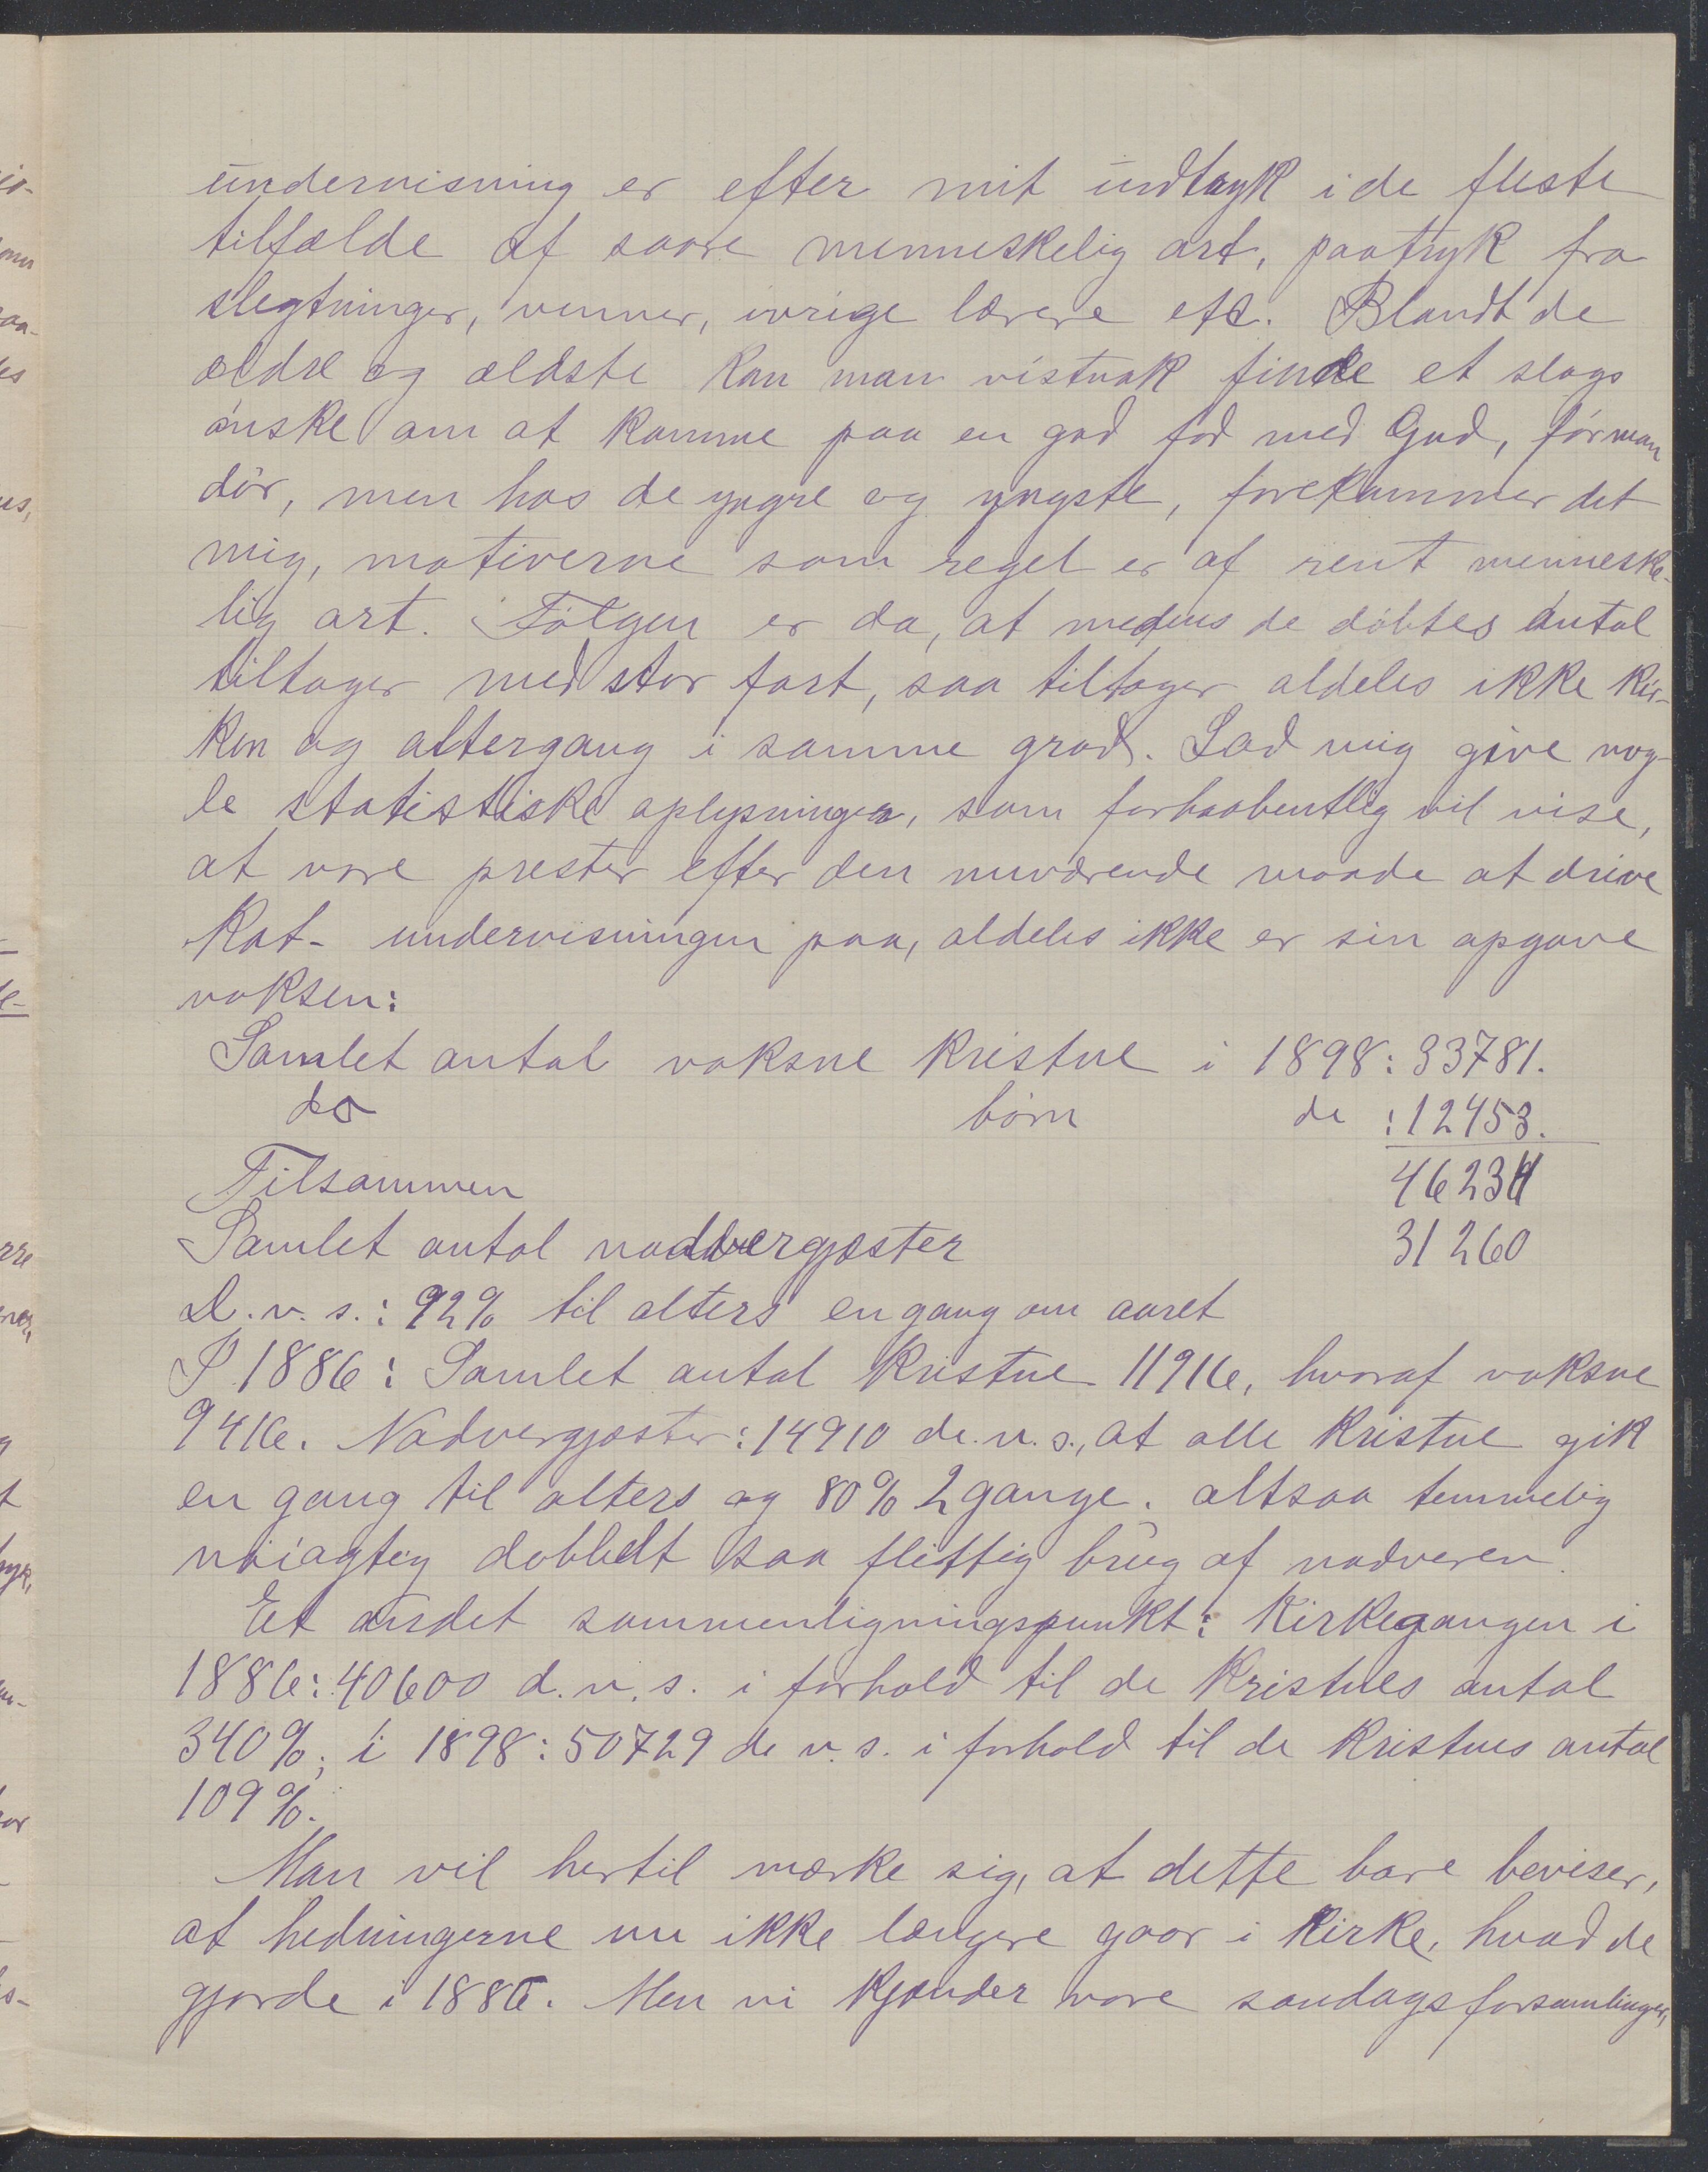 undervisning er efter mit indtryk i de fleste
tilfælde af saare menneskelig art, paatryk fra
slegtninger, venner, ivrige lærere etc. Blandt de
ældre og ældste kan man vistnok finde et slags
ønske om at komme paa en god fod med Gud, før man
dør, men hos de yngre og yngste, forekommer det
mig, motiverne som regel er af rent menneske-
lig art. Følgen er da, at medens de døbtes antal
tiltager med stor fart, saa tiltager aldeles ikke kir-
ken og altergang i samme grad. Lad mig give nog-
le statistiske oplysninger, som forhaabentlig vil vise,
at vore prester efter den nuværende maade at drive
Kat- undervisningen paa, aldeles ikke er sin opgave
voksen:
Samlet antal voksne kristne i 1898: 33781.
do børn do : 12453.
Tilsammen 46234
Samlet antal nadvergjæster 31260
D.v.s.: 92% til alters en gang om aaret
I 1886: Samlet antal kristne 11916, hvoraf voksne
9416. Nadvergjæster: 14910 d.v.s., at alle kristne gik
en gang til alters og 80% 2 gange. altsaa temmelig
nøiagtig dobbelt saa flittig brug af nadveren.
Et andet sammenligningspunkt: Kirkegangen i
1886: 40600 d.v.s. i forhold til de kristnes antal
340%; i 1898: 50729 d.v.s. i forhold til de kristnes antal
109%.
Man vil hertil mærke sig, at dette bare beviser,
at hedningerne nu ikke længere gaar i kirke, hvad de
gjorde i 1886. Men vi kjender vore søndagsforsamlinger,